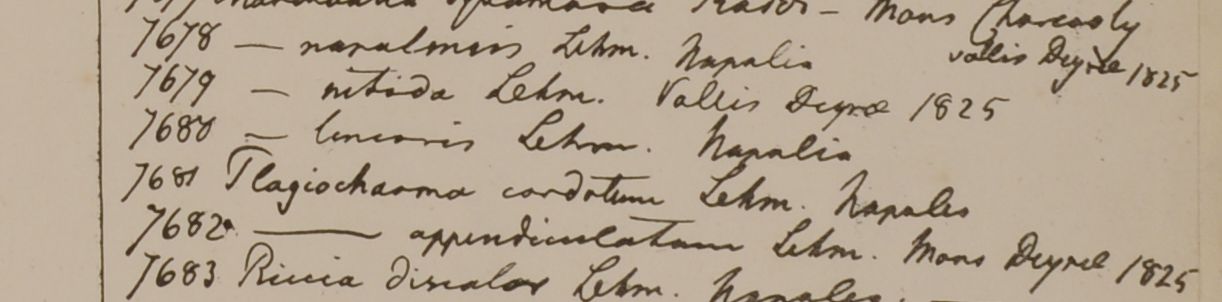 Mons Charcooly
7678 — napalensis Lehm. Napalia vallis Deyræ 1825
7679 — nitida Lehm. Vallis Deyræ 1825
7680 — linearis Lehm. Napalia
7681 Plagiochasma cordatum Lehm. Napalia
7682 — appendiculatum Lehm. Mons Deyræ 1825
7683 Riccia discolor Lehm. Napalia.